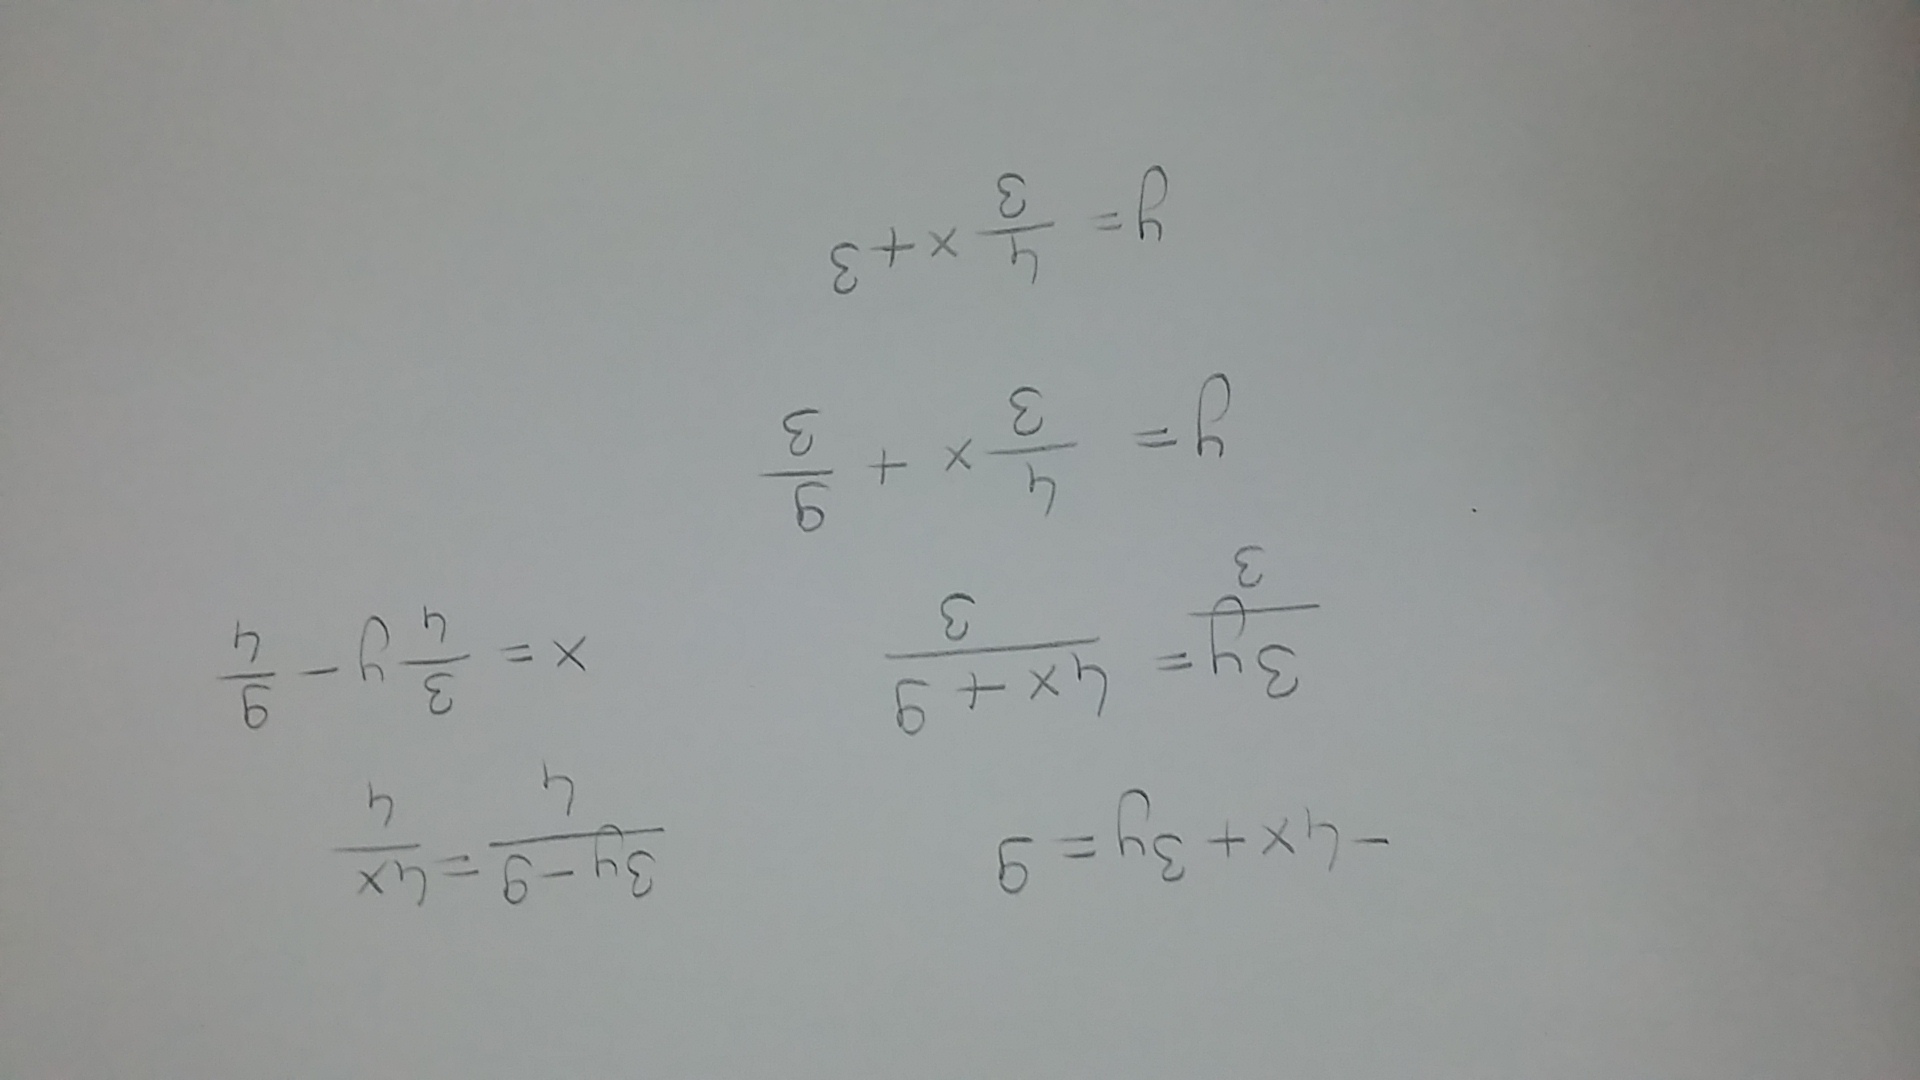 -4x + 3y = 9
3y/3 = (4x + 9)/3
y = 4/3 x + 9/3
y = 4/3 x + 3
(3y - 9)/4 = 4x/4
x = 3/4 y - 9/4